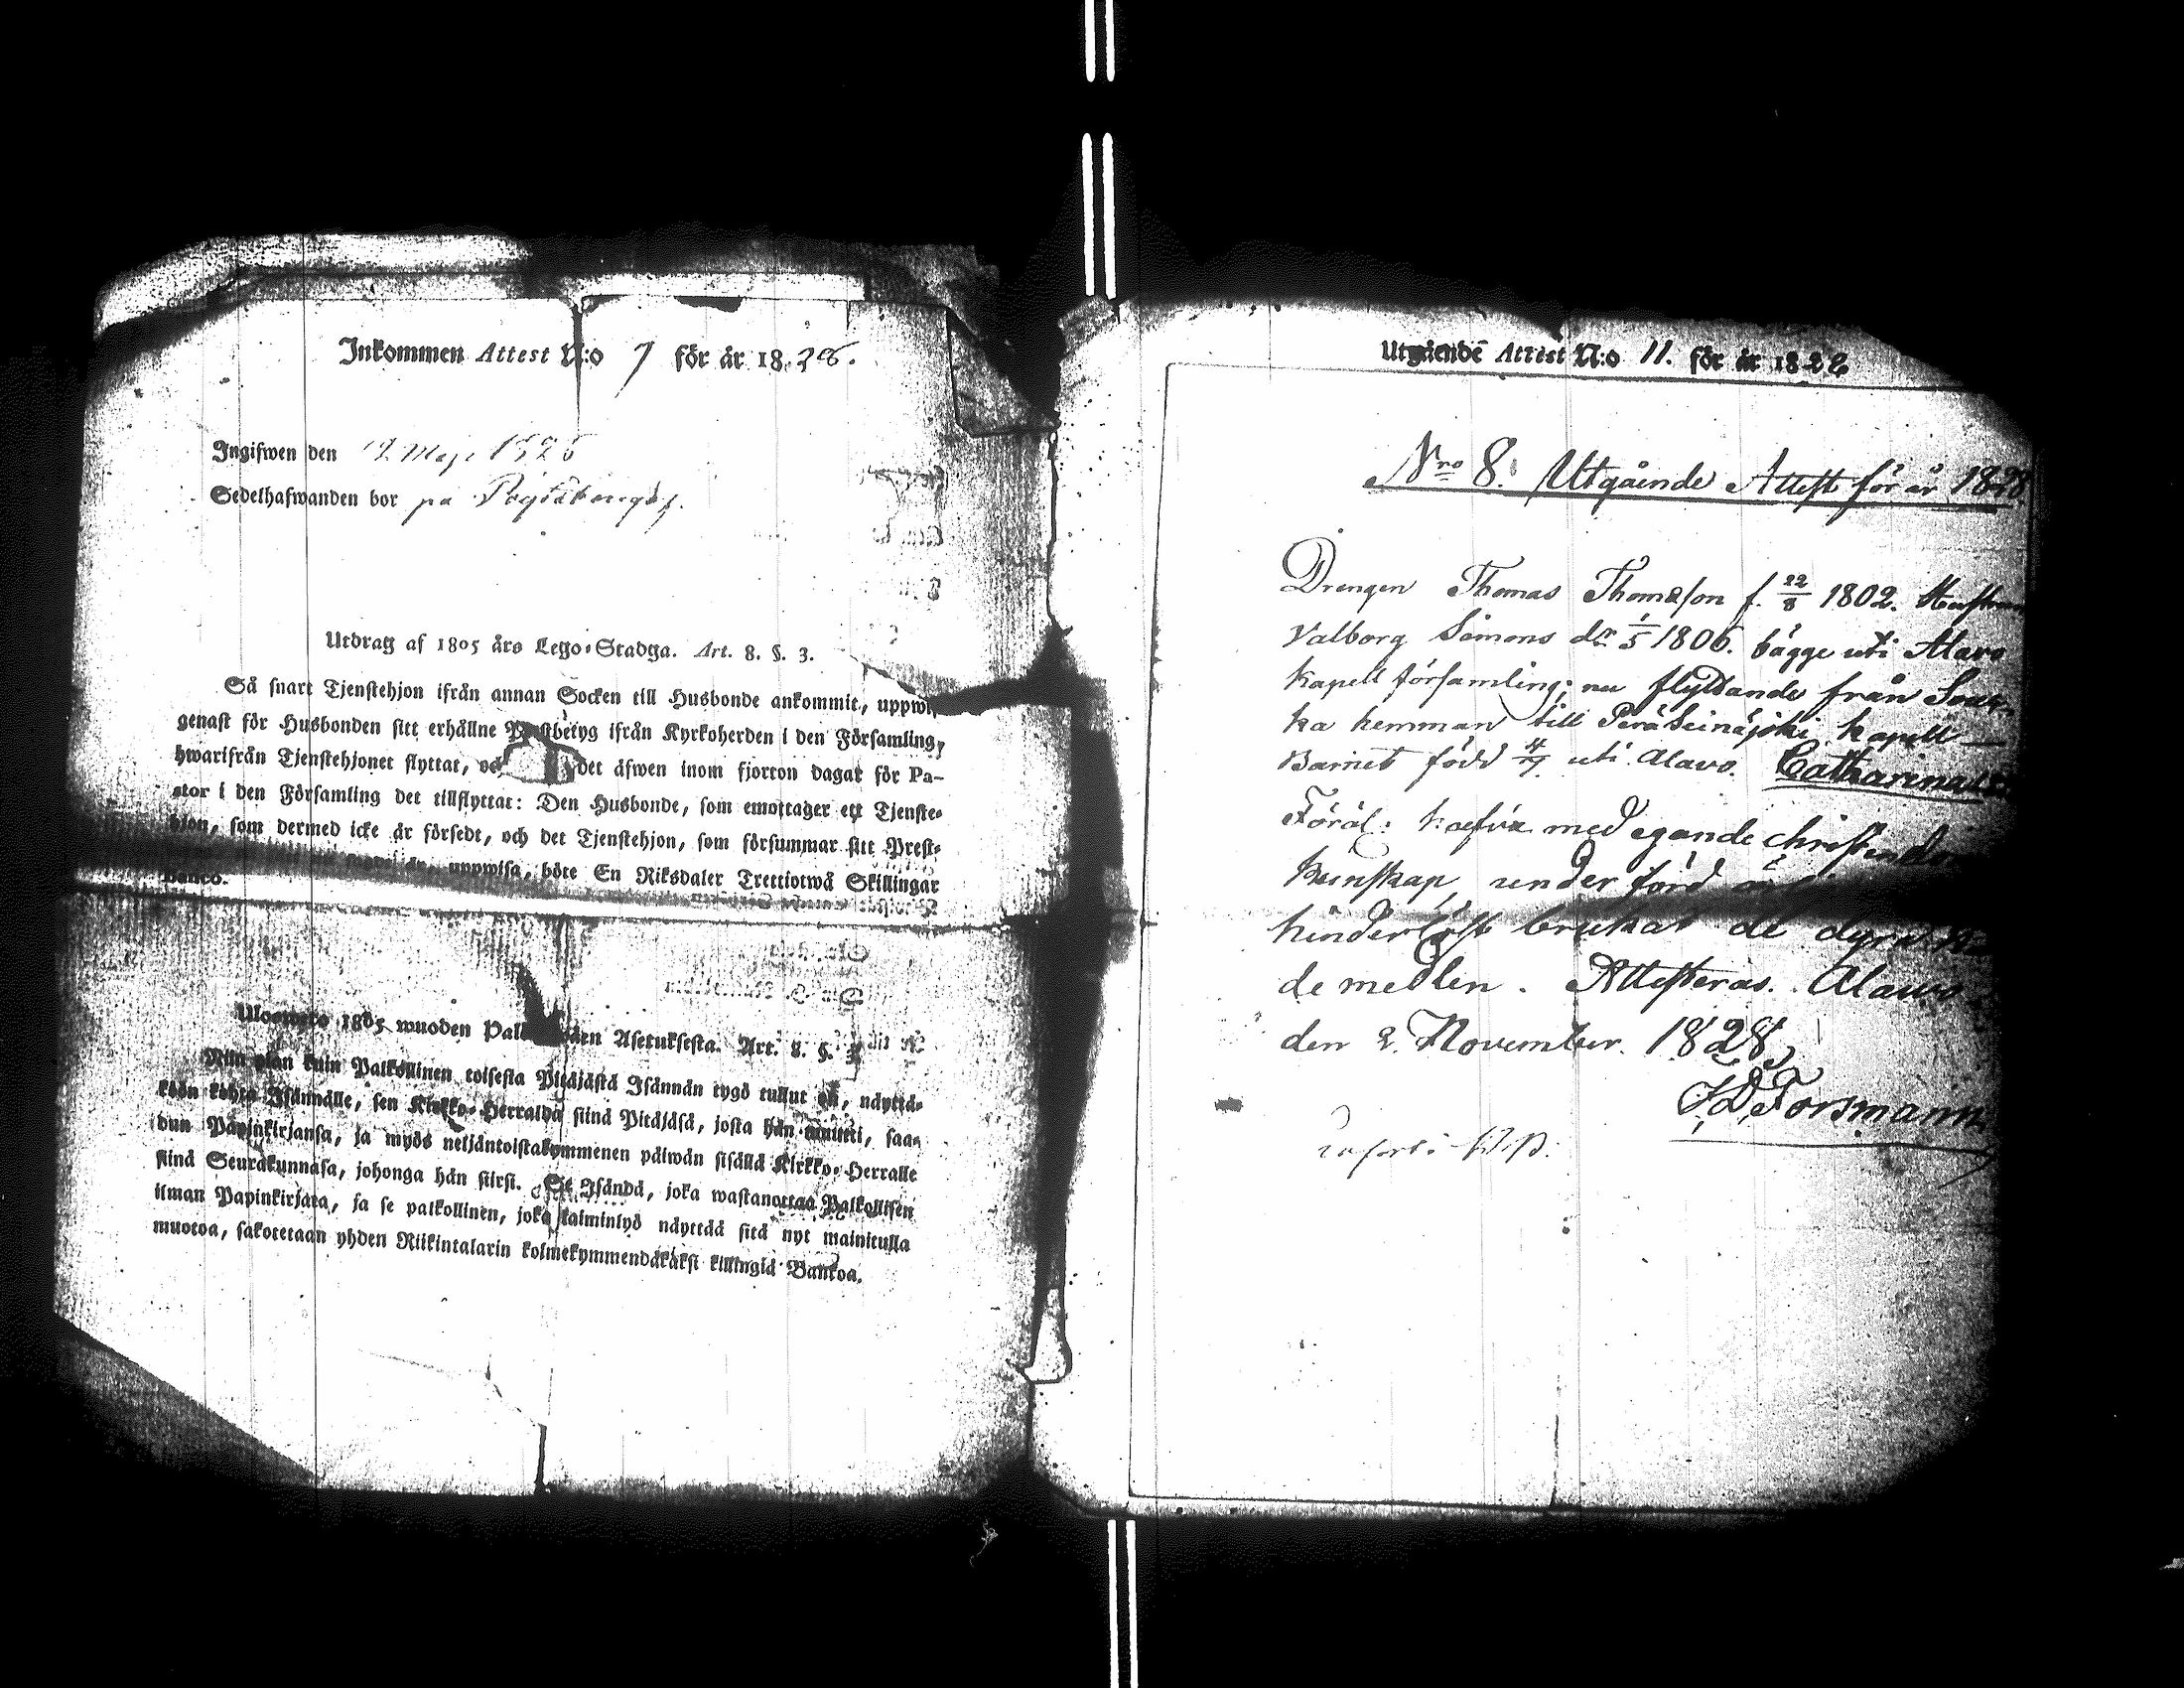 Inkommen Attest N:o 7 för år 1828.
Ingifwen den Maji
Sedelhafwanden bor på
Utdrag af 1805 års Lego-Stadga. Art. 8. §. 3.
Så snart Tjenstehjon ifrån annan Socken till Husbonde ankommit, uppwi
genast för Husbonden sitt erhållne Prestbetyg ifrån Kyrkoherden i den Församling,
hwarifrån Tjenstehjonet flyttat, och det äfwen inom fjorton dagar för Pa-
stor i den Församling det tillflyttat: Den Husbonde, som emottager ett Tjenste-
hjon, som dermed icke är försedt, och det Tjenstehjon, som försummar sitt Prest-
uppwisa, böte En Riksdaler Trettiotwå Skillingar
Banco.
Ulosweto 1805 wuoden Palkollisten Asetuksesta. Art. 8. §. 3.
Niin pian kuin Palkollinen toisesta Pitäjästä Isännän tygö tullut on, näyttä-
köön kohta Isännälle, sen Kirkko-Herralda siinä Pitäjäsä, josta hän muutti, saa-
dun Papinkirjansa, ja myös neljäntoistakymmenen päiwän sisällä Kirkko-Herralle
siinä Seurakunnasa, johonga hän siirsi. Se Isändä, joka wastanottaa Palkollisen
ilman Papinkirjata, ja se palkollinen, joka laiminlyö näyttää sitä nyt mainitulla
muotoa, sakotetaan yhden Riikintalarin kolmekymmendäkaksi killingiä Bankoa.
Utgående Attest N:o 11. för år 1828
Nro 8. Utgående Attest för år 1828
Drengen Thomas Thomasson f. 22/8 1802. Hustrun
Valborg Simons dr. 1/5 1806. bägge uti Alavo
kapell församling; nu flyttande från
ka hemman till Peräseinäjoki kapell —
Barnet född 4/7 uti Alavo. Catharina
Föräl: hafva med egande christendoms
kunskap, under förd
hinderlöst brukat de dyra
de medlen. Attesteras. Alavo
den 2. November. 1828
Forsmann